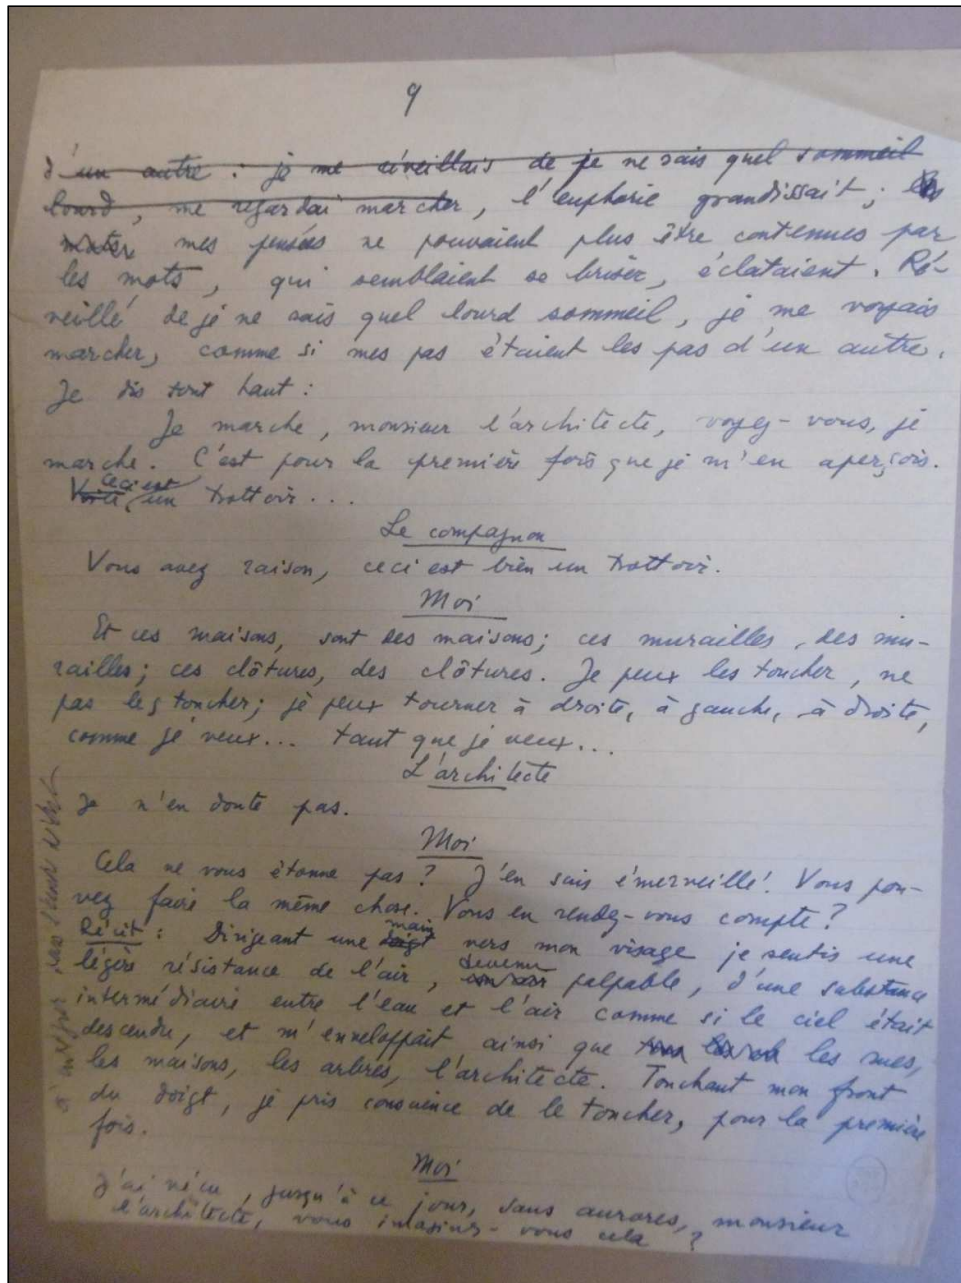 9
d'un autre : je me réveillais de je ne sais quel sommeil
lourd, me regardai marcher, l'euphorie grandissait ;
mes pensées ne pouvaient plus être contenues par
les mots, qui semblaient se briser, éclataient. Ré-
veillé de je ne sais quel lourd sommeil, je me voyais
marcher, comme si mes pas étaient les pas d'un autre.
Je dis tout haut :
Je marche, monsieur l'architecte, voyez-vous, je
marche. C'est pour la première fois que je m'en aperçois.
Voici ceci est un trottoir...
Le compagnon
Vous avez raison, ceci est bien un trottoir.
Moi
Et ces maisons, sont des maisons; ces murailles, des mu-
railles; ces clôtures, des clôtures. Je peux les toucher, ne
pas les toucher; je peux tourner à droite, à gauche, à droite,
comme je veux... tant que je veux...
L'architecte
Je n'en doute pas.
Moi
Cela ne vous étonne pas? J'en suis émerveillé! Vous pou-
vez faire la même chose. Vous en rendez-vous compte?
Récit : Dirigeant une doigt main vers mon visage je sentis une
légère résistance de l'air, devenu palpable, d'une substance
intermédiaire entre l'eau et l'air comme si le ciel était
descendu, et m'enveloppait ainsi que les rues,
les maisons, les arbres, l'architecte. Touchant mon front
du doigt, je pris conscience de le toucher, pour la première
fois.
Moi
J'ai vécu, jusqu'à ce jour, sans aurores, monsieur
l'architecte, vous imaginez-vous cela ?